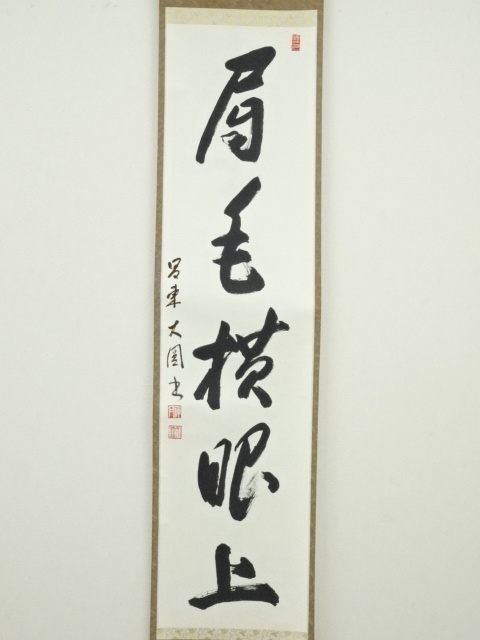 眉毛横眼上
大圓書